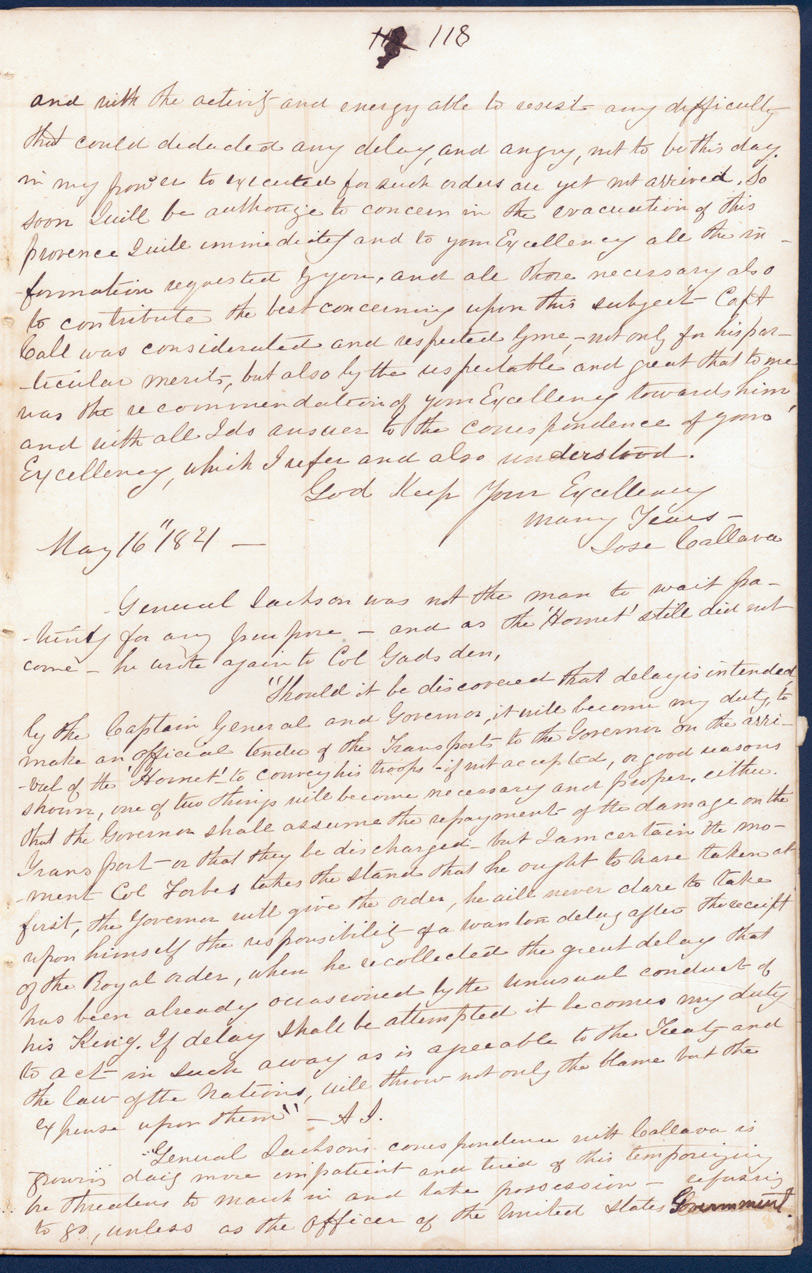 118
and with the activity and energy able to resist any difficulty
that could dedaded any delay, and angry, not to be this day
in my power to executed for such orders are yet not arrived. So
soon I will be authorize to concern in the evacuation of this
provence I will immediately and to your Excellency all the in-
-formation requested by you, and all those necessary also
to contribute the best concerning upon this subject - Capt
Call was considerated and respected by me, - not only for his par-
-ticular merits, but also by the respectable and great that to me
was the recommendation of your Excellency towards him,
and with all I do answer to the correspondence of your
Excellency, which I refer and also understood.
God Keep Your Excellency
many Years -
May 16" 1821 - Jose Callava
General Jackson was not the man to wait pa-
-tiently for any purpose - and as the 'Hornet' still did not
come - he wrote again to Col Gadsden,
"Should it be discovered that delay is intended,
by the Captain General and Governor, it will become my duty, to
make an official tender of the Transports to the Governor on the arri-
-val of the 'Hornet' - to convey his troops - if not accepted, or good reasons
shown, one of two things will become necessary and proper, either
that the Governor shall assume the repayment of the damage on the
Transport - or that they be discharged - but I am certain the mo-
-ment Col Forbes takes the stand that he ought to have taken at
first, the Governor will give the order, he will never dare to take
upon himself the responsibility of a wanton delay after the receipt
of the Royal order, when he recollected the great delay that
has been already occasioned by the unusual conduct of
his King. If delay shall be attempted it becomes my duty
to act in such away as is agreeable to the Treaty and
the law of the Nations, will throw not only the blame but the
expense upon them" - A J.
General Jacksons correspondence with Callava is
growing daily more impatient and tired of this temporizing
he threatens to march in and take possession - refusing
to go, unless as the Officer of the United States Government.